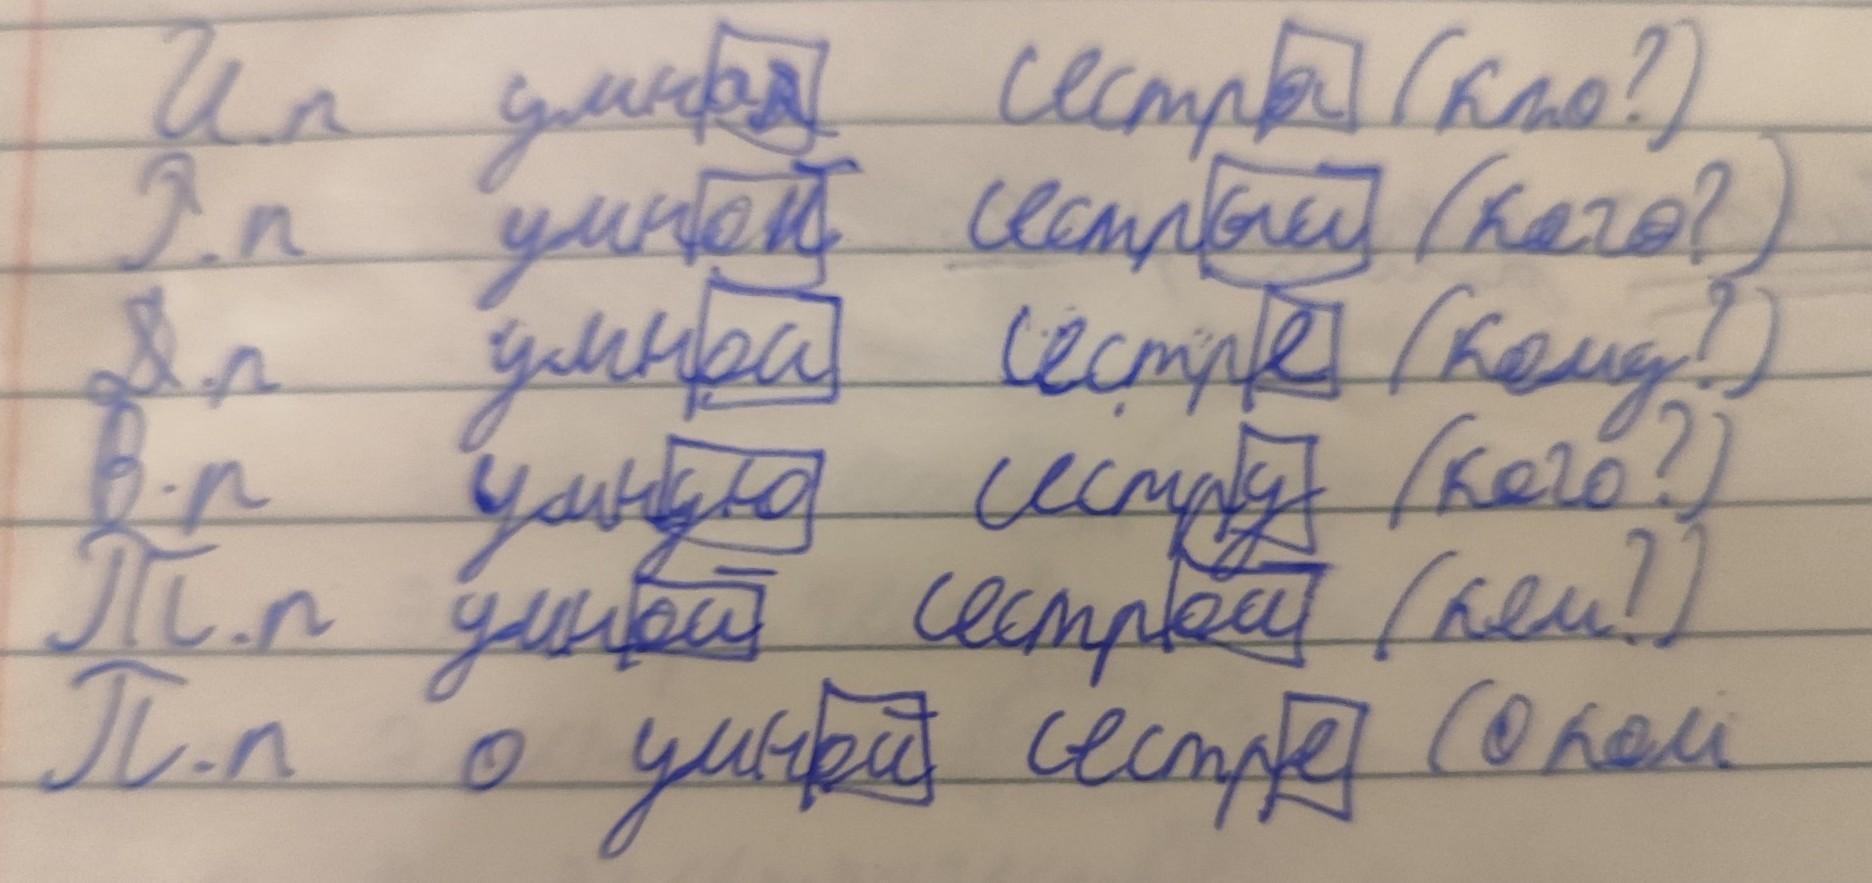 И.п умная сестра (кто?)
Р.п умной сестрыи (кого?)
Д.п умной сестре (кому?)
В.п умную сестру (кого?)
Т.п умной сестрой (кем?)
П.п о умной сестре (о ком